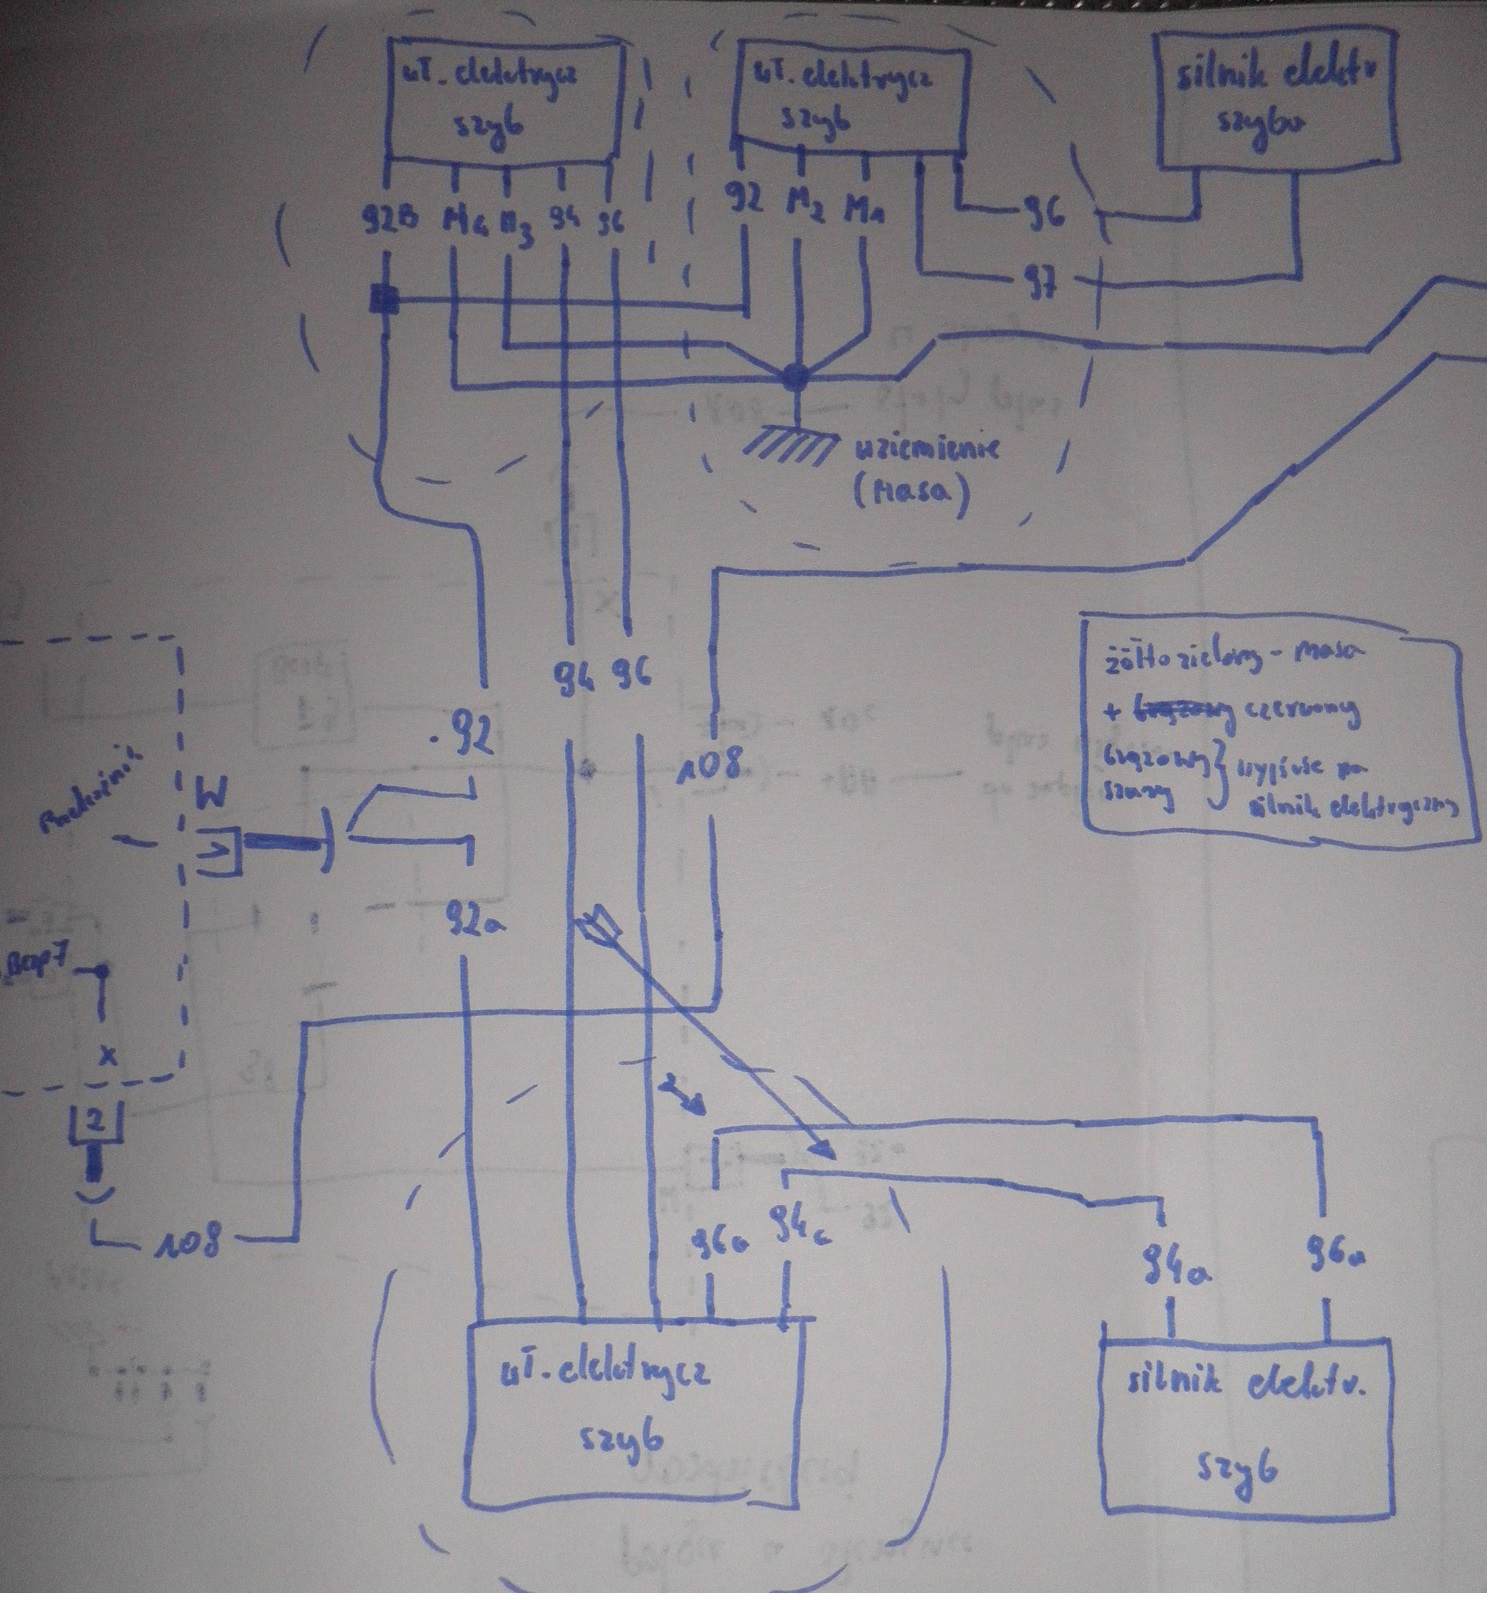 wł. elektrycz
szyb
wł. elektrycz
szyb
silnik elektr
szybu
92B M4 M3 94 96
92 M2 M1
96
97
uziemienie
(masa)
94 96
żółtozielony - masa
+ czerwony
brązowy } wyjście na
szary silnik elektryczny
.92
108
W
92a
Bezp7
x
2
2
108
96a 94a
94a 96a
wł. elektrycz
szyb
silnik elektr.
szyb